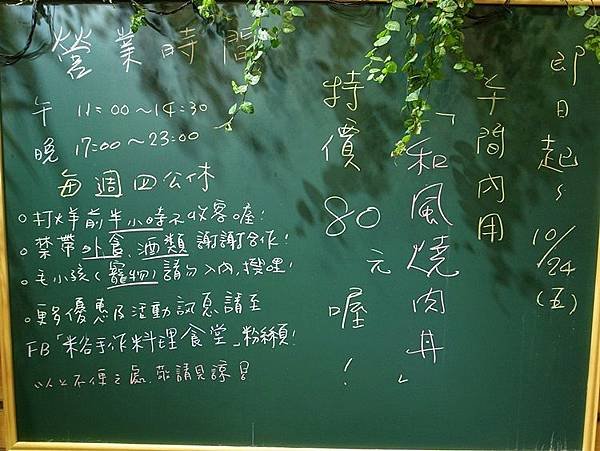 營業時間
午 11:00～14:30
晚 17:00～23:00
每週四公休
。打烊前半小時不收客喔!
。禁帶外食、酒類 謝謝合作!
。毛小孩(寵物)請勿入內,撥哩!
。更多優惠及活動訊息請至
FB「米谷手作料理食堂」粉絲頁!
以上不便之處,敬請見諒
即日起~10/24(五)
午間內用
「和風燒肉丼」
特價80元喔!